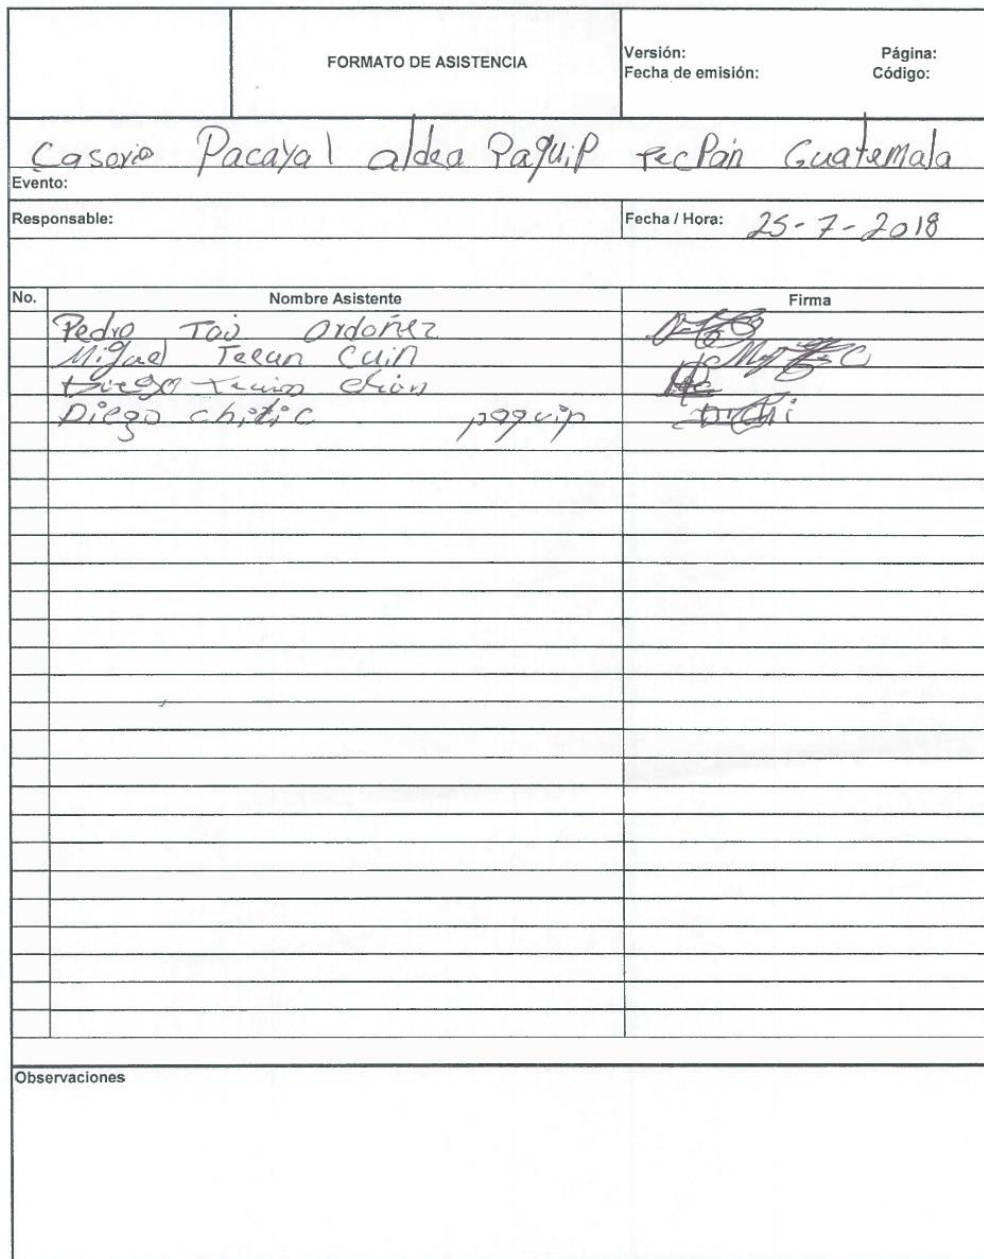 FORMATO DE ASISTENCIA
Versión: Página:
Fecha de emisión: Código:
Casorio Pacayal aldea Paquip tecPán Guatemala
Evento:
Responsable: Fecha / Hora: 25-7-2018
No. Nombre Asistente Firma
Pedro Toj Ordoñez
Miguel Tecun Cuin
Diego
Diego chitic paquip
Observaciones